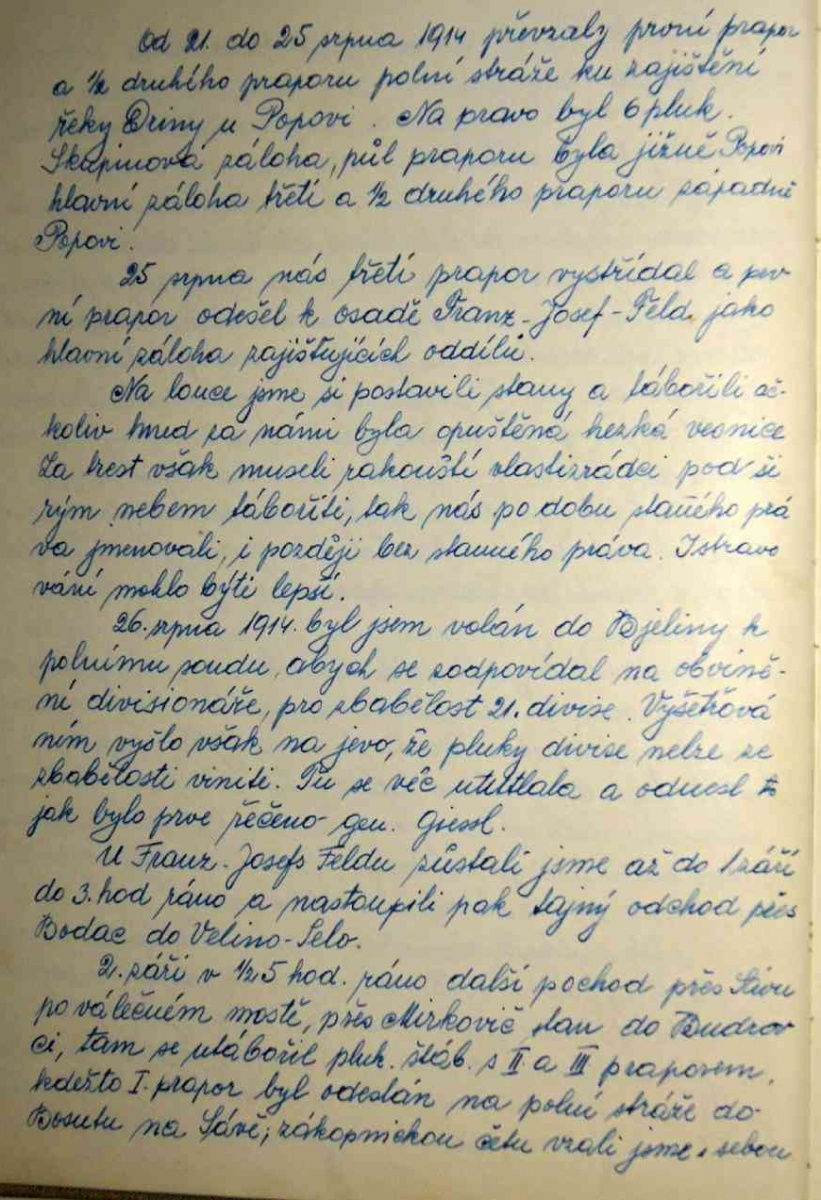 Od 21. do 25 srpna 1914 převzaly první prapor
a 1/2 druhého praporu polní stráže ku zajištění
řeky Driny u Popovi. Na pravo byl 6 pluk.
Skupinová záloha, půl praporu byla jižně Popovi
hlavní záloha třetí a 1/2 druhého praporu západně
Popovi.
25 srpna nás třetí prapor vystřídal a prv
ní prapor odešel k osadě Franz-Josef-Feld jako
hlavní záloha zajišťujících oddílů.
Na louce jsme si postavili stany a tábořili ač-
koliv hned za námi byla opuštěná hezká vesnice
Za trest však museli rakouští vlastizrádci pod ši
rým nebem tábořiti, tak nás po dobu staného prá
va jmenovali, i později bez stanného práva. Istravo
vání mohlo býti lepší.
26. srpna 1914. byl jsem volán do Bjeliny k
polnímu soudu, abych se zodpovídal na obvině-
ní divisionáře, pro zbabělost 21. divise. Vyšetřová
ním vyšlo však na jevo, že pluky divise nelze ze
zbabělosti viniti. Tu se věc ututlala a odnesl to
jak bylo prve řečeno gen. Giessl.
U Franz-Josefs Feldu zůstali jsme až do 1 září
do 3. hod ráno a nastoupili pak tajný odchod přes
Bodac do Velino-Selo.
2. září v 1/2 5 hod. ráno další pochod přes Sávu
po válečném mostě, přes Mirkovič stan do Budrov
ci, tam se utábořil pluk. štáb. s II. a III praporem,
kdežto I. prapor byl odeslán na polní stráže do
Bosutu na Sávě; zákopnickou četu vzali jsme s sebou